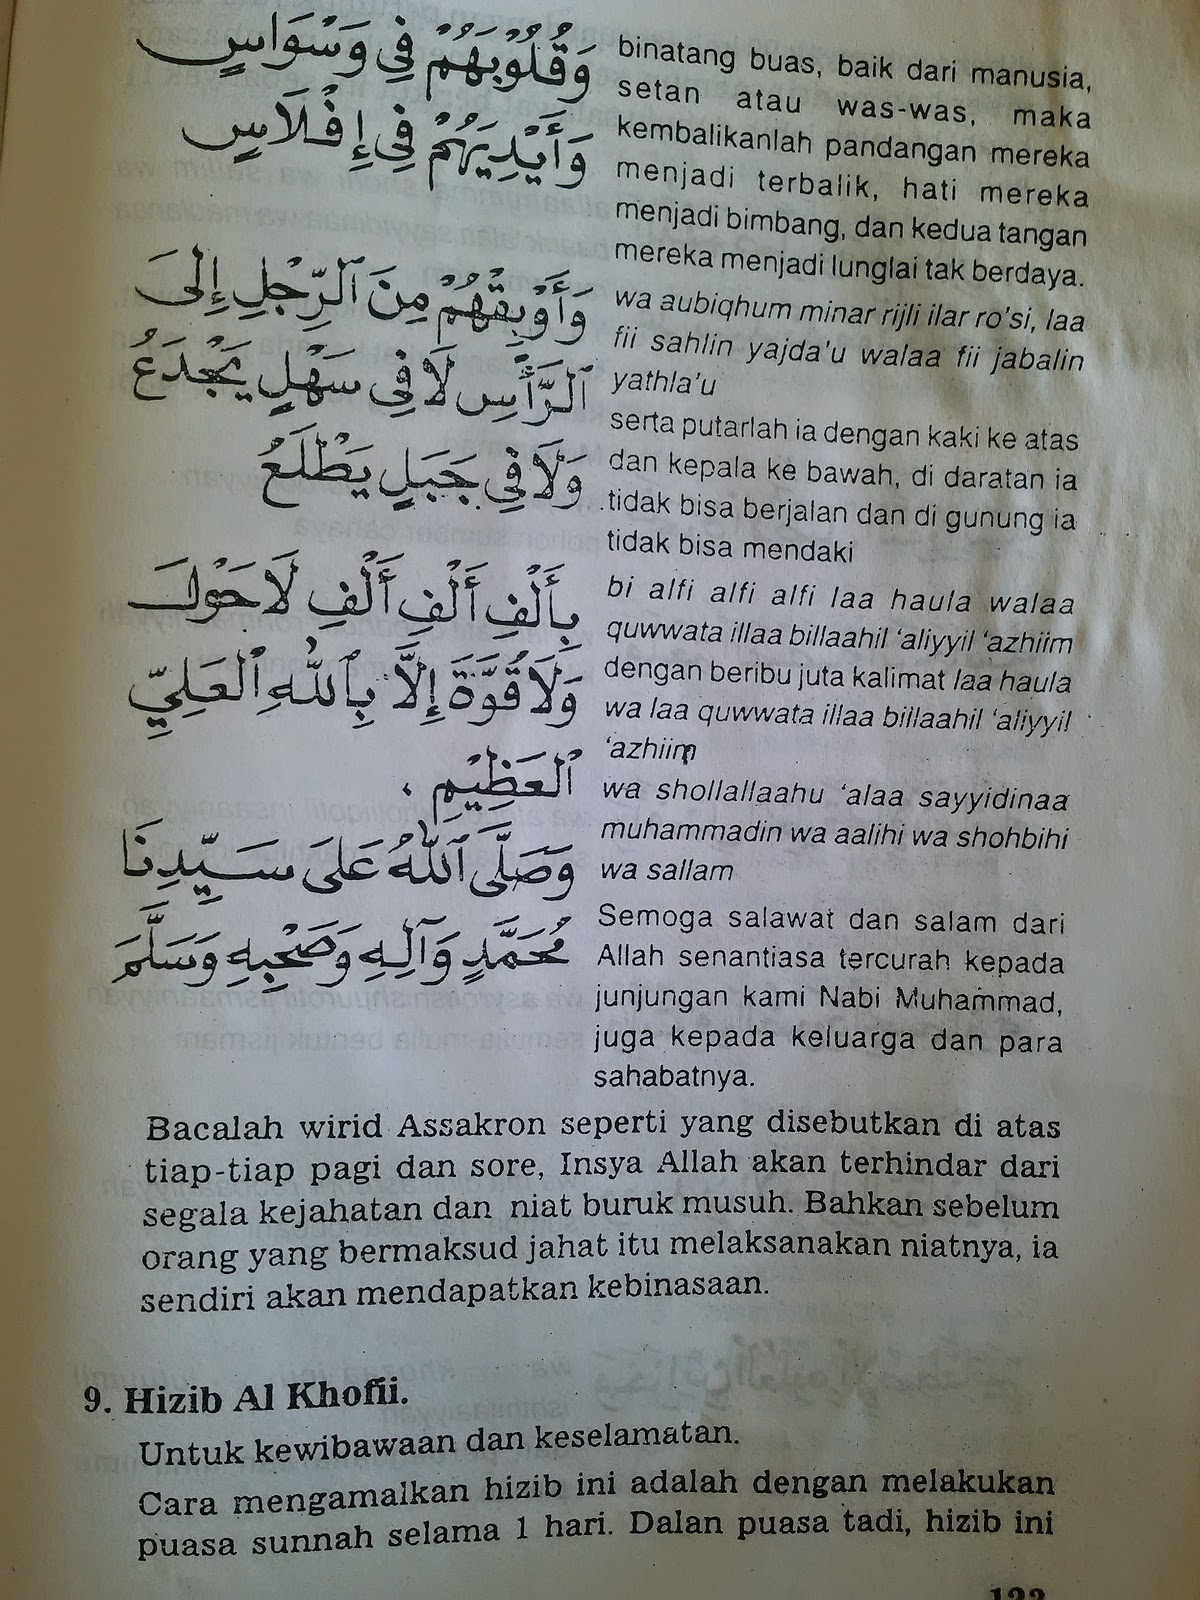 وَقُلُوْبَهُمْ فِي وَسْوَاسٍ
وَأَيْدِيَهُمْ فِي إِفْلَاسٍ
binatang buas, baik dari manusia,
setan atau was-was, maka
kembalikanlah pandangan mereka
menjadi terbalik, hati mereka
menjadi bimbang, dan kedua tangan
mereka menjadi lunglai tak berdaya.
وَأَوْبِقْهُمْ مِنَ ٱلرِّجْلِ إِلَى
ٱلرَّأْسِ لَا فِي سَهْلٍ يَجْدَعُ
وَلَا فِي جَبَلٍ يَطْلَعُ
wa aubiqhum minar rijli ilar ro'si, laa
fii sahlin yajda'u walaa fii jabalin
yathla'u
serta putarlah ia dengan kaki ke atas
dan kepala ke bawah, di daratan ia
tidak bisa berjalan dan di gunung ia
tidak bisa mendaki
بِأَلْفِ أَلْفِ أَلْفِ لَا حَوْلَ
وَلَا قُوَّةَ إِلَّا بِٱللّٰهِ ٱلْعَلِيِّ
ٱلْعَظِيْمِ .
bi alfi alfi alfi laa haula walaa
quwwata illaa billaahil 'aliyyil 'azhiim
dengan beribu juta kalimat laa haula
wa laa quwwata illaa billaahil 'aliyyil
'azhiim
وَصَلَّى ٱللّٰهُ عَلَى سَيِّدِنَا
مُحَمَّدٍ وَآلِهِ وَصَحْبِهِ وَسَلَّمَ
wa shollallaahu 'alaa sayyidinaa
muhammadin wa aalihi wa shohbihi
wa sallam
Semoga salawat dan salam dari
Allah senantiasa tercurah kepada
junjungan kami Nabi Muhammad,
juga kepada keluarga dan para
sahabatnya.
Bacalah wirid Assakron seperti yang disebutkan di atas
tiap-tiap pagi dan sore, Insya Allah akan terhindar dari
segala kejahatan dan niat buruk musuh. Bahkan sebelum
orang yang bermaksud jahat itu melaksanakan niatnya, ia
sendiri akan mendapatkan kebinasaan.
9. Hizib Al Khofii.
Untuk kewibawaan dan keselamatan.
Cara mengamalkan hizib ini adalah dengan melakukan
puasa sunnah selama 1 hari. Dalan puasa tadi, hizib ini